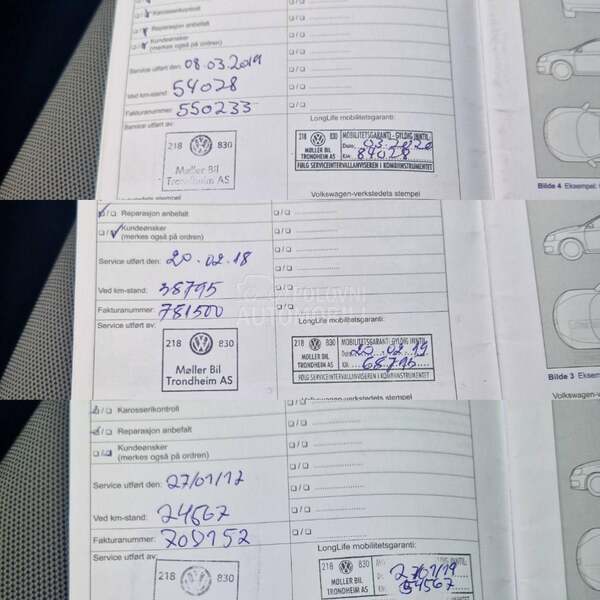 Karosserikontroll
Reparasjon anbefalt
Kundeønsker
(merkes også på ordren)
Service utført den: 08.03.2019
Ved km-stand: 54028
Fakturanummer: 550233
Service utført av:
LongLife mobilitetsgaranti:
218 830
Møller Bil
Trondheim AS
218 830 MOBILITETSGARANTI - GYLDIG INNTIL
Dato 03.2020
MØLLER BIL Km 84028
TRONDHEIM AS FØLG SERVICEINTERVALLANVISEREN I KOMBIINSTRUMENTET
Volkswagen-verkstedets stempel
Bilde 4 Eksempel:
Reparasjon anbefalt
Kundeønsker
(merkes også på ordren)
Service utført den: 20.02.18
Ved km-stand: 38795
Fakturanummer: 781500
Service utført av:
LongLife mobilitetsgaranti:
218 830
Møller Bil
Trondheim AS
218 830 MOBILITETSGARANTI - GYLDIG INNTIL
20.02.19
MØLLER BIL Km 68795
TRONDHEIM AS FØLG SERVICEINTERVALLANVISEREN I KOMBIINSTRUMENTET
Bilde 3 Eksem
Volkswagen-verkstedets stempel
POLOVNI
AUTOMOBILI
Karosserikontroll
Reparasjon anbefalt
Kundeønsker
(merkes også på ordren)
Service utført den: 27/01/17
Ved km-stand: 24567
Fakturanummer: 708152
Service utført av:
LongLife mobilitetsgaranti:
218 830
218 830
27/01/19
MØLLER BIL 54567
TRONDHEIM AS